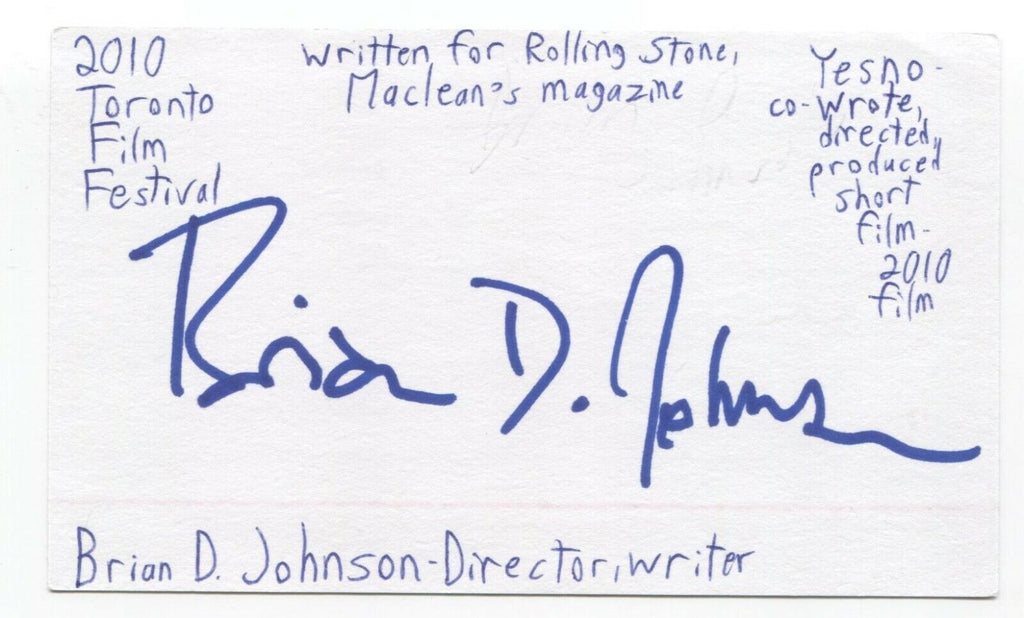 2010
Toronto
Film
Festival
written for Rolling Stone,
Maclean's magazine
Yesno-
co-wrote,
directed,
produced
short
film-
2010
film
Brian D. Johnson
Brian D. Johnson-Director, writer